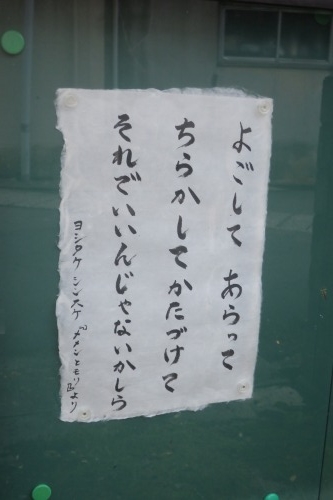 よごして あらって
ちらかしてかたづけて
それでいいんじゃないかしら
ヨシタケ シンスケ『メメンとモリ』より